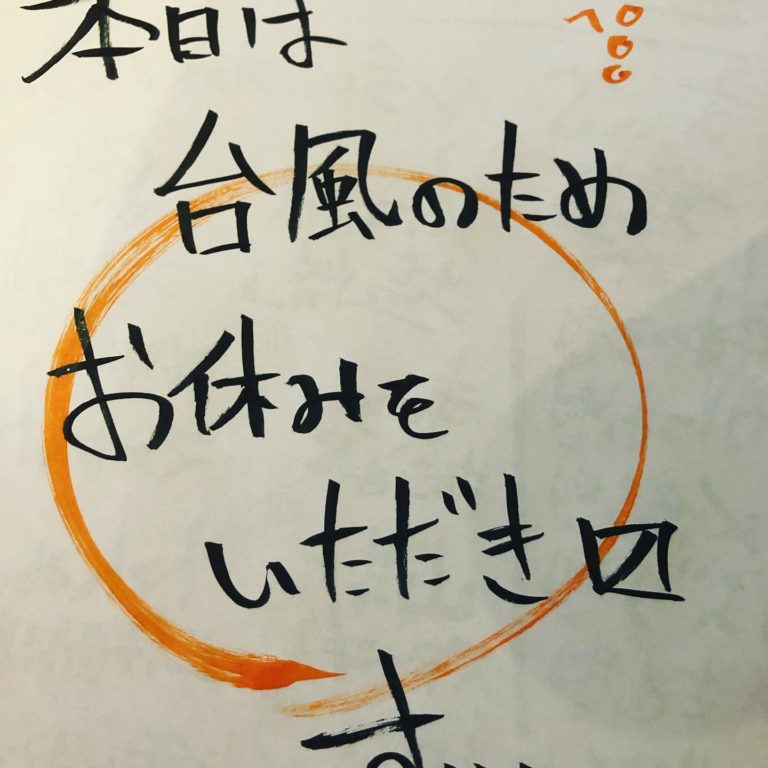 本日は
台風のため
お休みを
いただき〼
す...